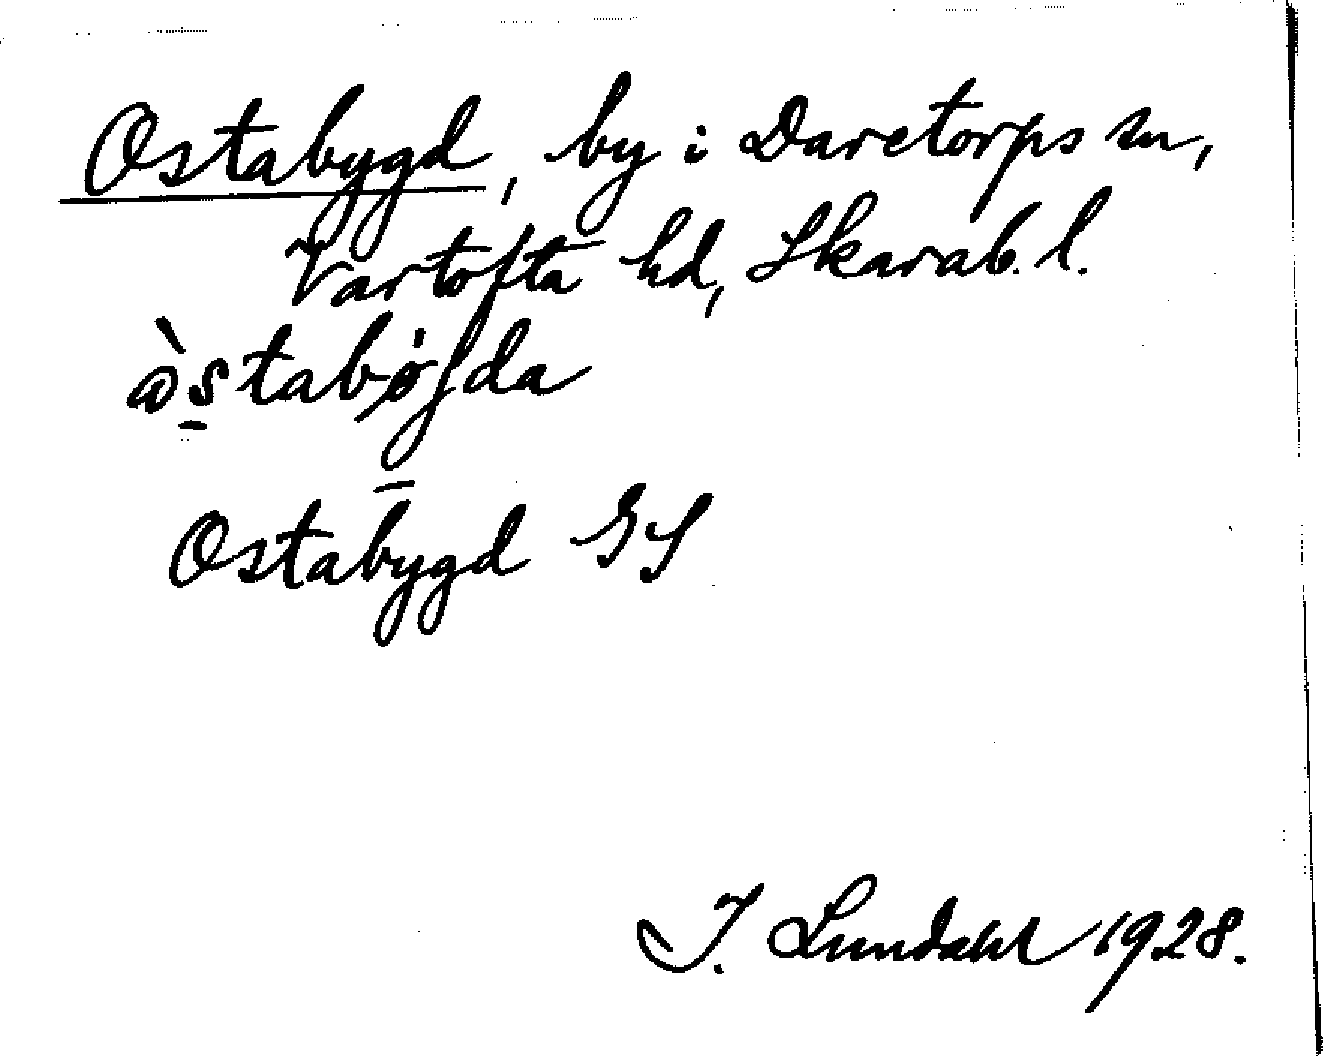 Ostabygd, by i Daretorps sn,
Vartofta hd, Skarab. l.
òstabø̀gda
Ostabygd GS
I. Lundahl 1928.